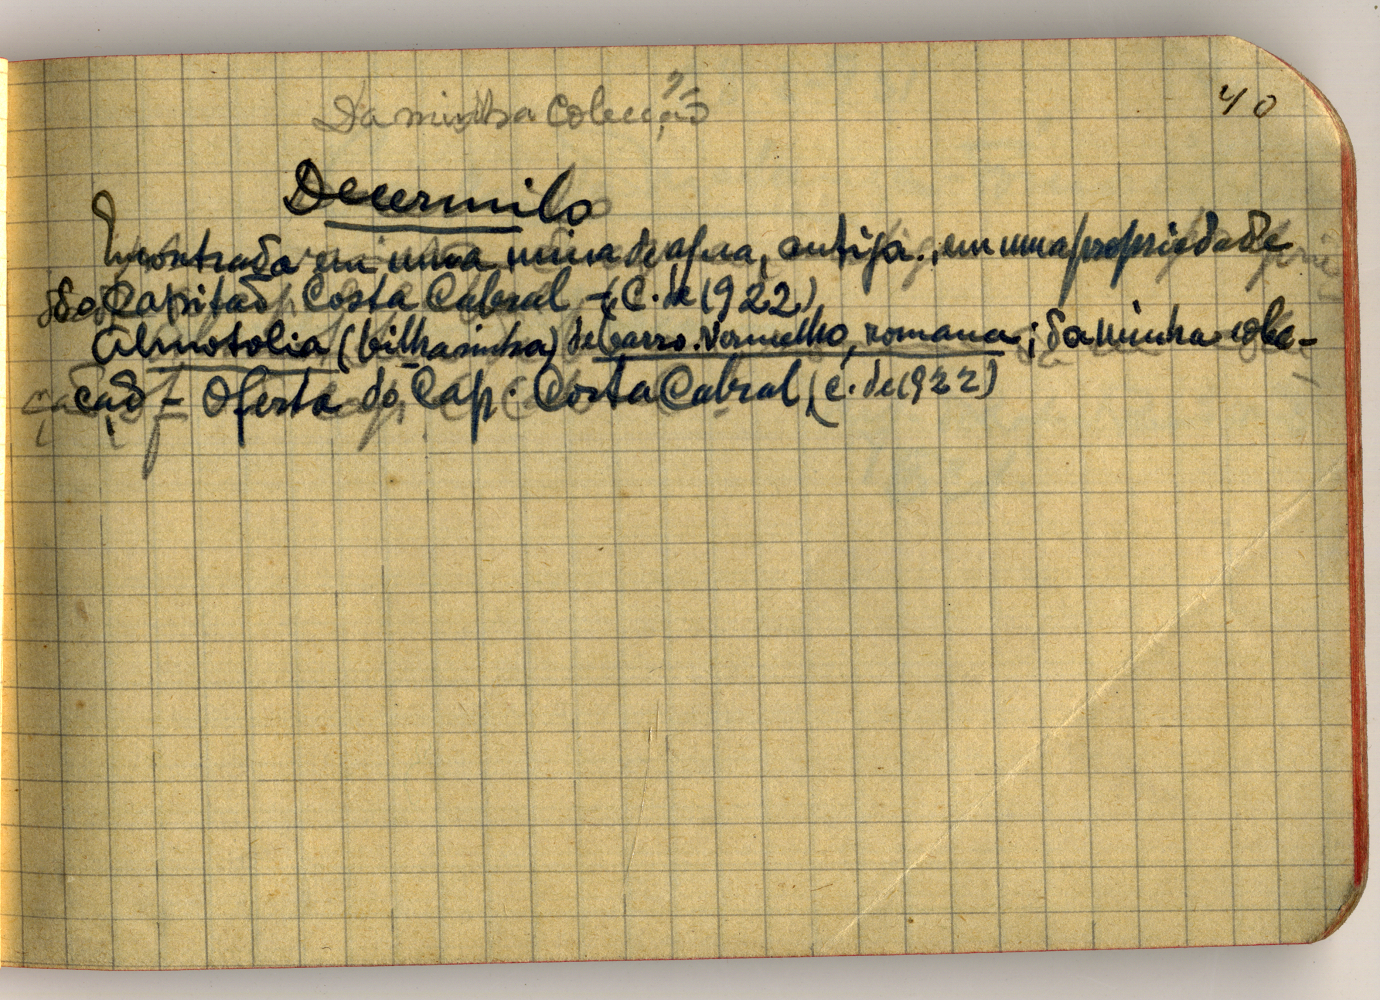 40
Da minha Colecção
Decermilo
Encontrada em uma mina de agua, antiga, em uma propriedade
do Capitão Costa Cabral - (C. de 1922)
Almotolia (bilhasinha) de barro vermelho, romana; da minha cole-
cção - Oferta do Cap. Costa Cabral (c. de 1922)